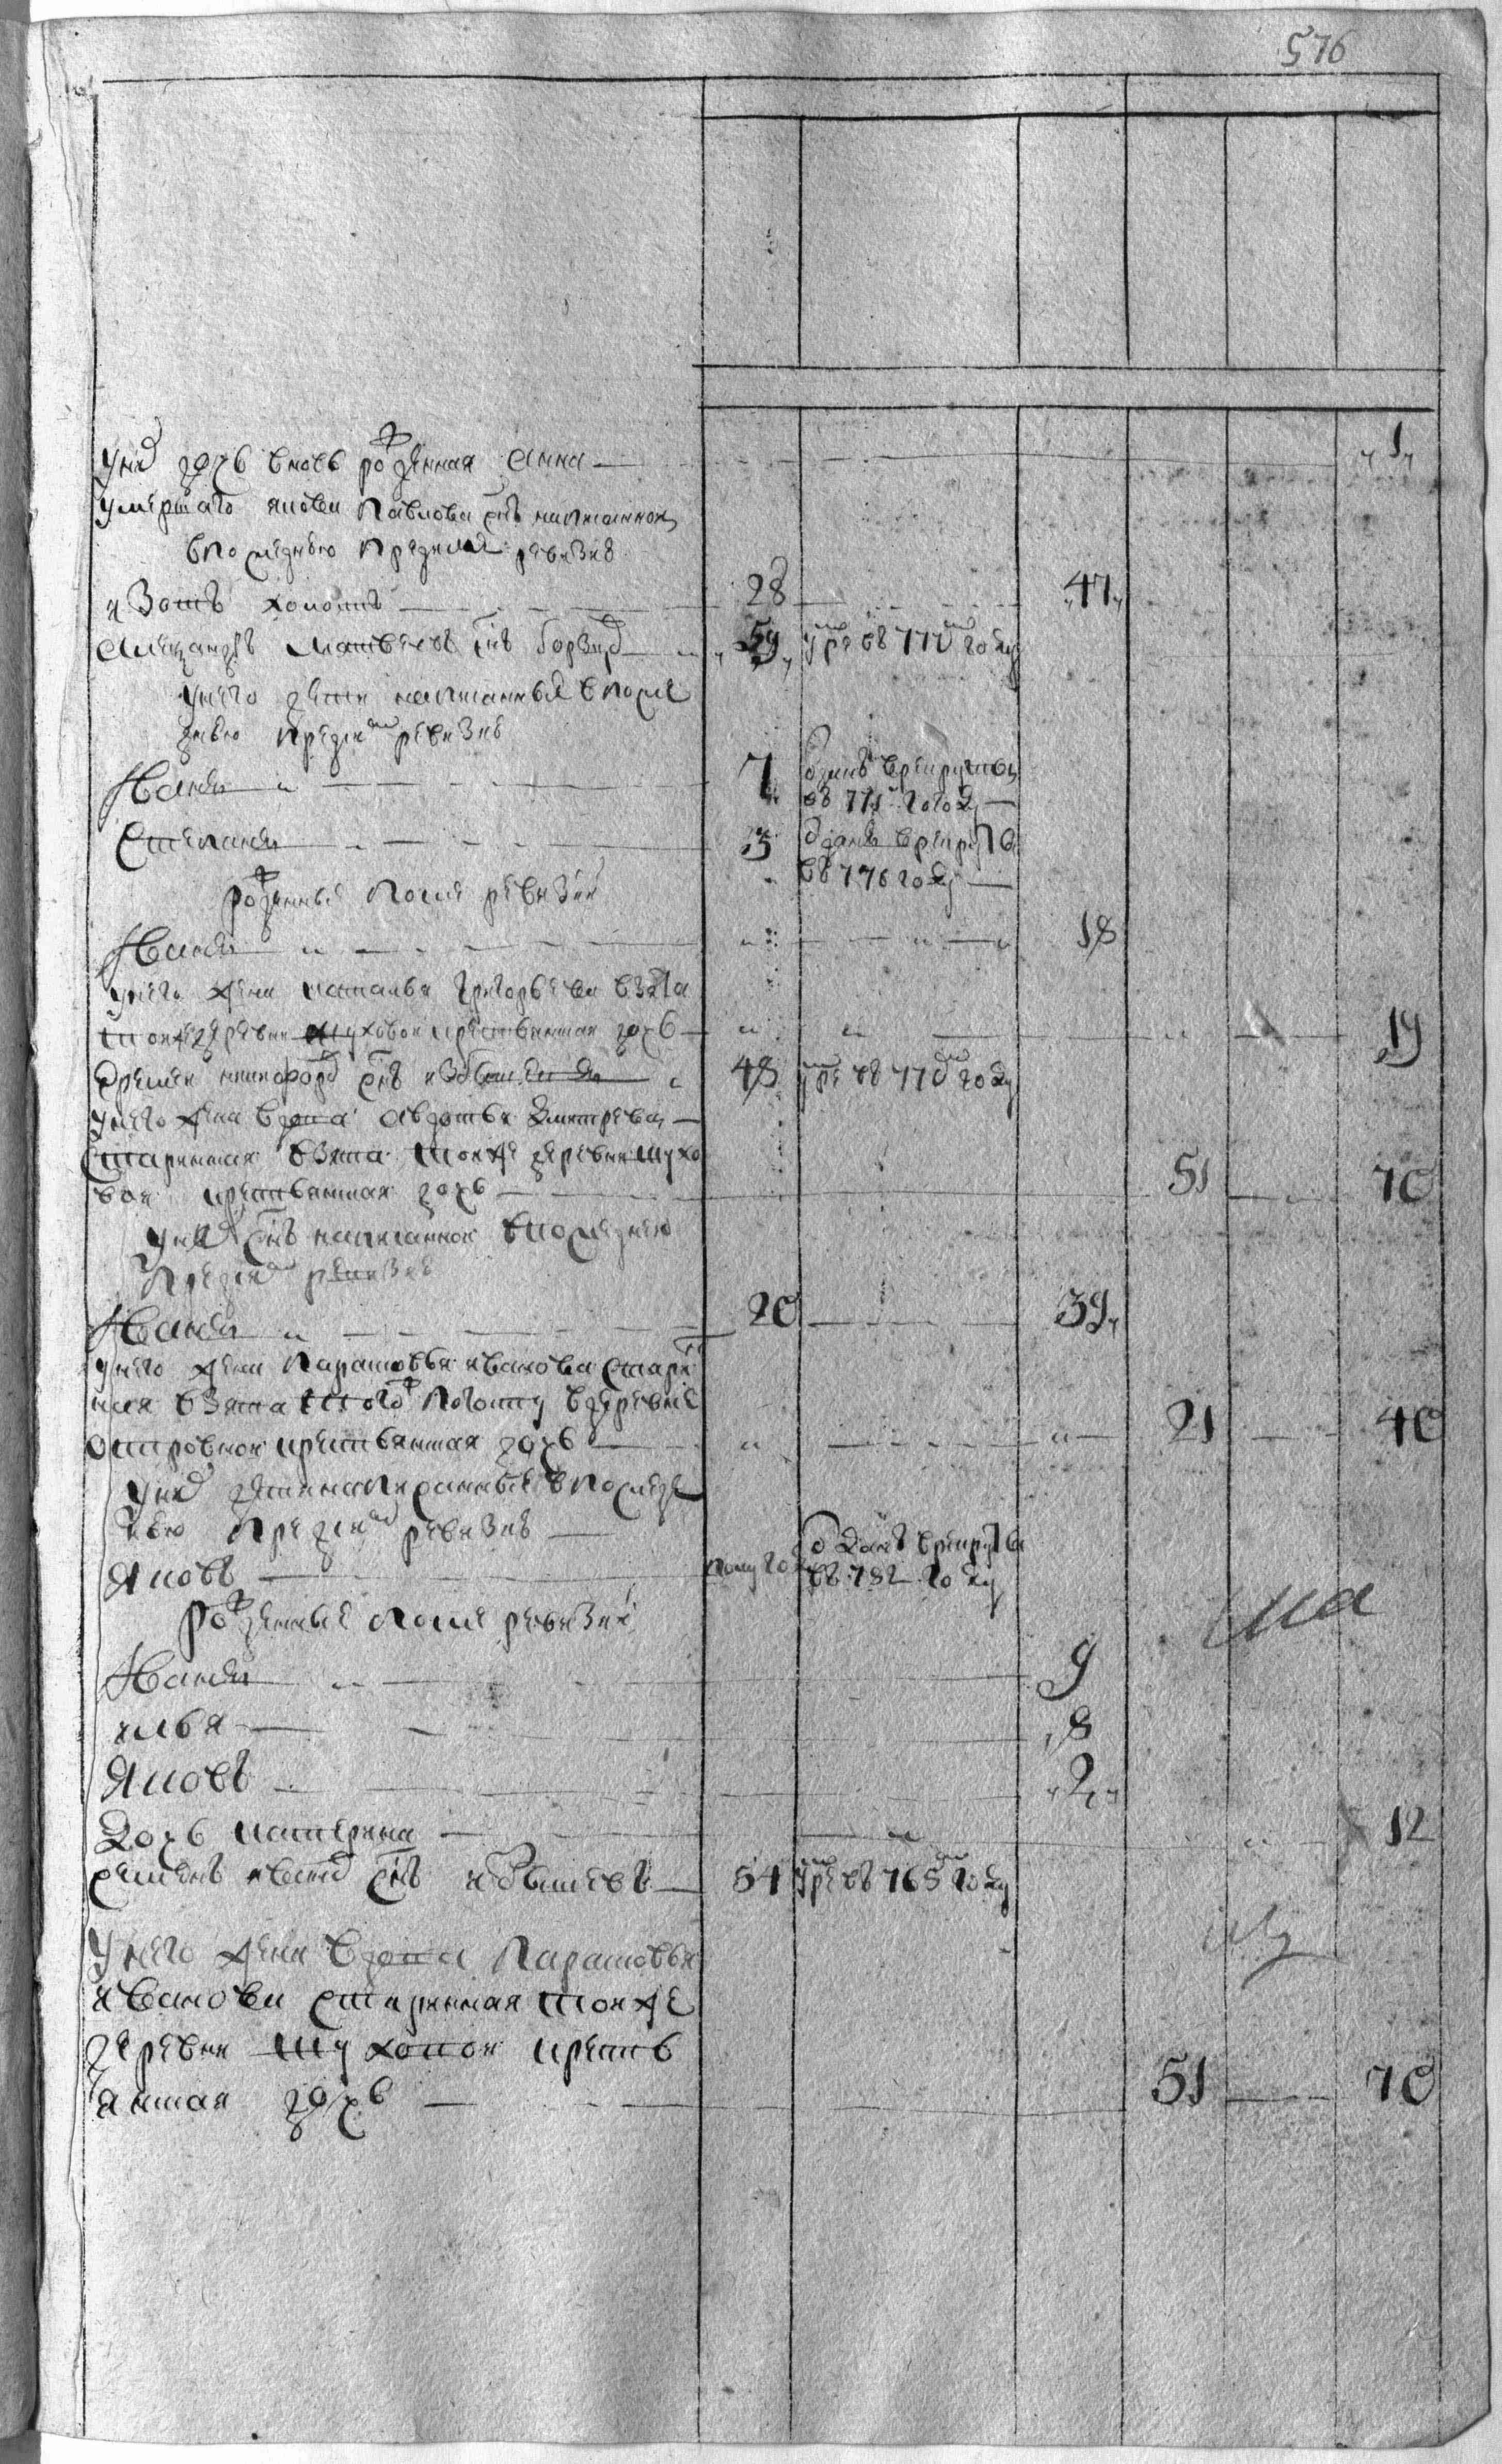 576
у ней дочь вновь рожденная Анна — „1„
умершаго якова Павлова сынъ написанной
в последнюю пред сим ревизию
изотъ холостъ — 28 — „47„
Александръ Матвеевъ сынъ — „59„ умре въ 770м году
у него дети написанныя в после
днюю пред сим ревизию
Иванъ — 7 отданъ в рекруты
въ 771 г году —
Степанъ — 3 отданъ в рекруты
въ 776 году —
рожденныя после ревизии
Иванъ — 18
у него жена наталья Григорьева взята
тои же деревни шуховои крестьянская дочь — 19
Никифоровъ сынъ — 48 умре въ 770м году
у него жена вдова Авдотья Дмитриева —
старинная взята тои же деревни шухо
вои крестьянская дочь — 51 — 70
у ней сынъ написаннои в последнюю
пред сим ревизию
Иванъ — 20 — 39„
у него жена Парасковья иванова старин
ная взята того ж погосту в деревне
островнои крестьянская дочь — 21 — 40
у ней дети написанныя в послед
нюю пред сим ревизию —
Яковъ — полугоду отданъ в рекруты
въ 782 году
рожденныя после ревизии
Иванъ — 9
илья — „8
Яковъ — „2„
дочь катерина — 12
семенъ иванов сынъ — 54 умре въ 765м году
у него жена вдова Парасковья
иванова старинная тои же
деревни шуховои кресть
янская дочь — 51 — 70